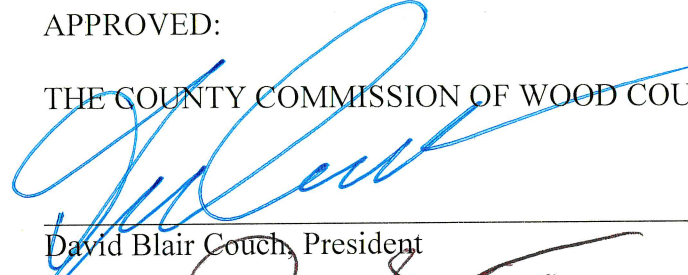 APPROVED:
THE COUNTY COMMISSION OF WOOD COU
David Blair Couch, President